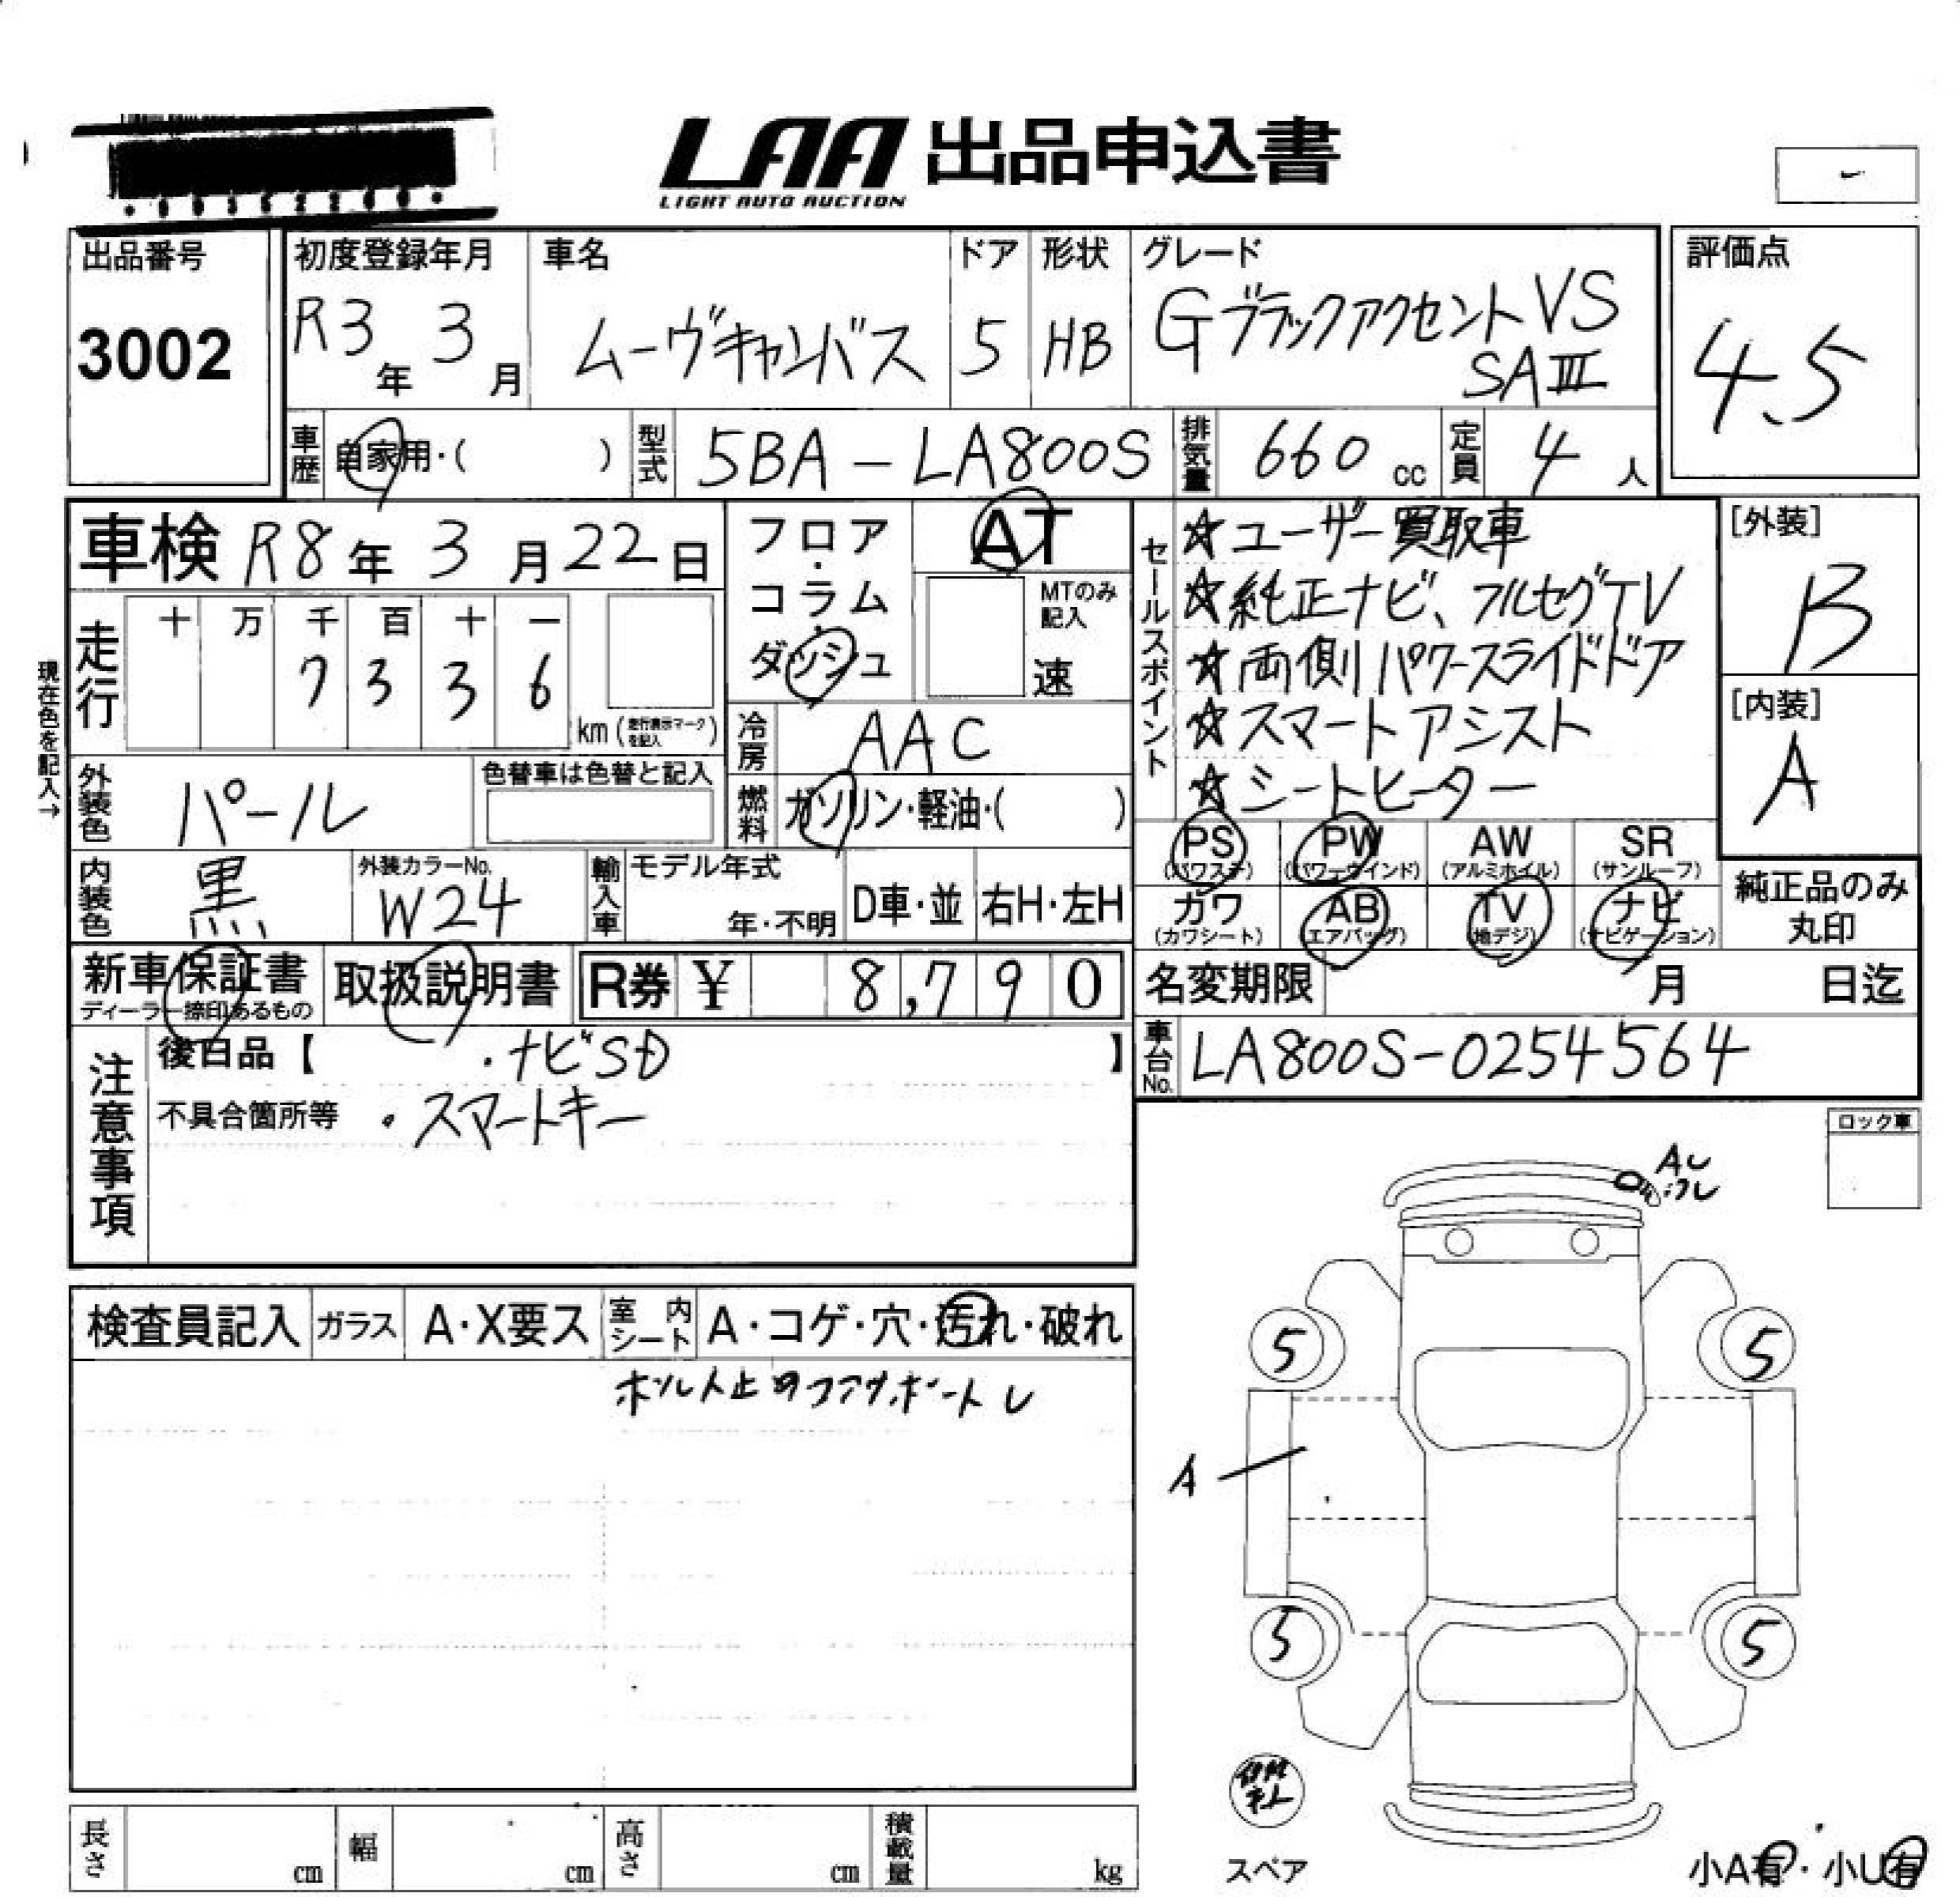 LAA 出品申込書
LIGHT AUTO AUCTION
出品番号
3002
初度登録年月
R3年 3月
車名
ムーヴキャンバス
ドア
5
形状
HB
グレード
Gブラックアクセント VS
SAIII
評価点
4.5
車歴
自家用・( )
型式
5BA-LA800S
排気量
660 cc
定員
4 人
車検 R8年 3月22日
フロア・コラム・ダッシュ
AT
MTのみ記入
速
現在色を記入→
走行
十 万 千 百 十 一
7 3 3 6
km (走行表示マークを記入)
冷房
AAC
外装色
パール
色替車は色替と記入
燃料
ガソリン・軽油・( )
内装色
黒
外装カラーNo.
W24
輸入車
モデル年式
年・不明
D車・並
右H・左H
セールスポイント
☆ユーザー買取車
☆純正ナビ、フルセグTV
☆両側パワースライドドア
☆スマートアシスト
☆シートヒーター
[外装]
B
[内装]
A
PS (パワステ)
PW (パワーウインド)
AW (アルミホイル)
SR (サンルーフ)
カワ (カワシート)
AB (エアバッグ)
TV (地デジ)
ナビ (ナビゲーション)
純正品のみ丸印
新車保証書
ディーラー捺印あるもの
取扱説明書
R券 ¥ 8,790
名変期限 月 日迄
車台No.
LA800S-0254564
注意事項
後日品【 ・ナビSD 】
不具合箇所等 ・スマートキー
ロック車
検査員記入
ガラス
A・X要ス
室内シート
A・コゲ・穴・汚れ・破れ
A
5
5
5
5
スペア
小A有・小U有
長さ cm
幅 cm
高さ cm
積載量 kg